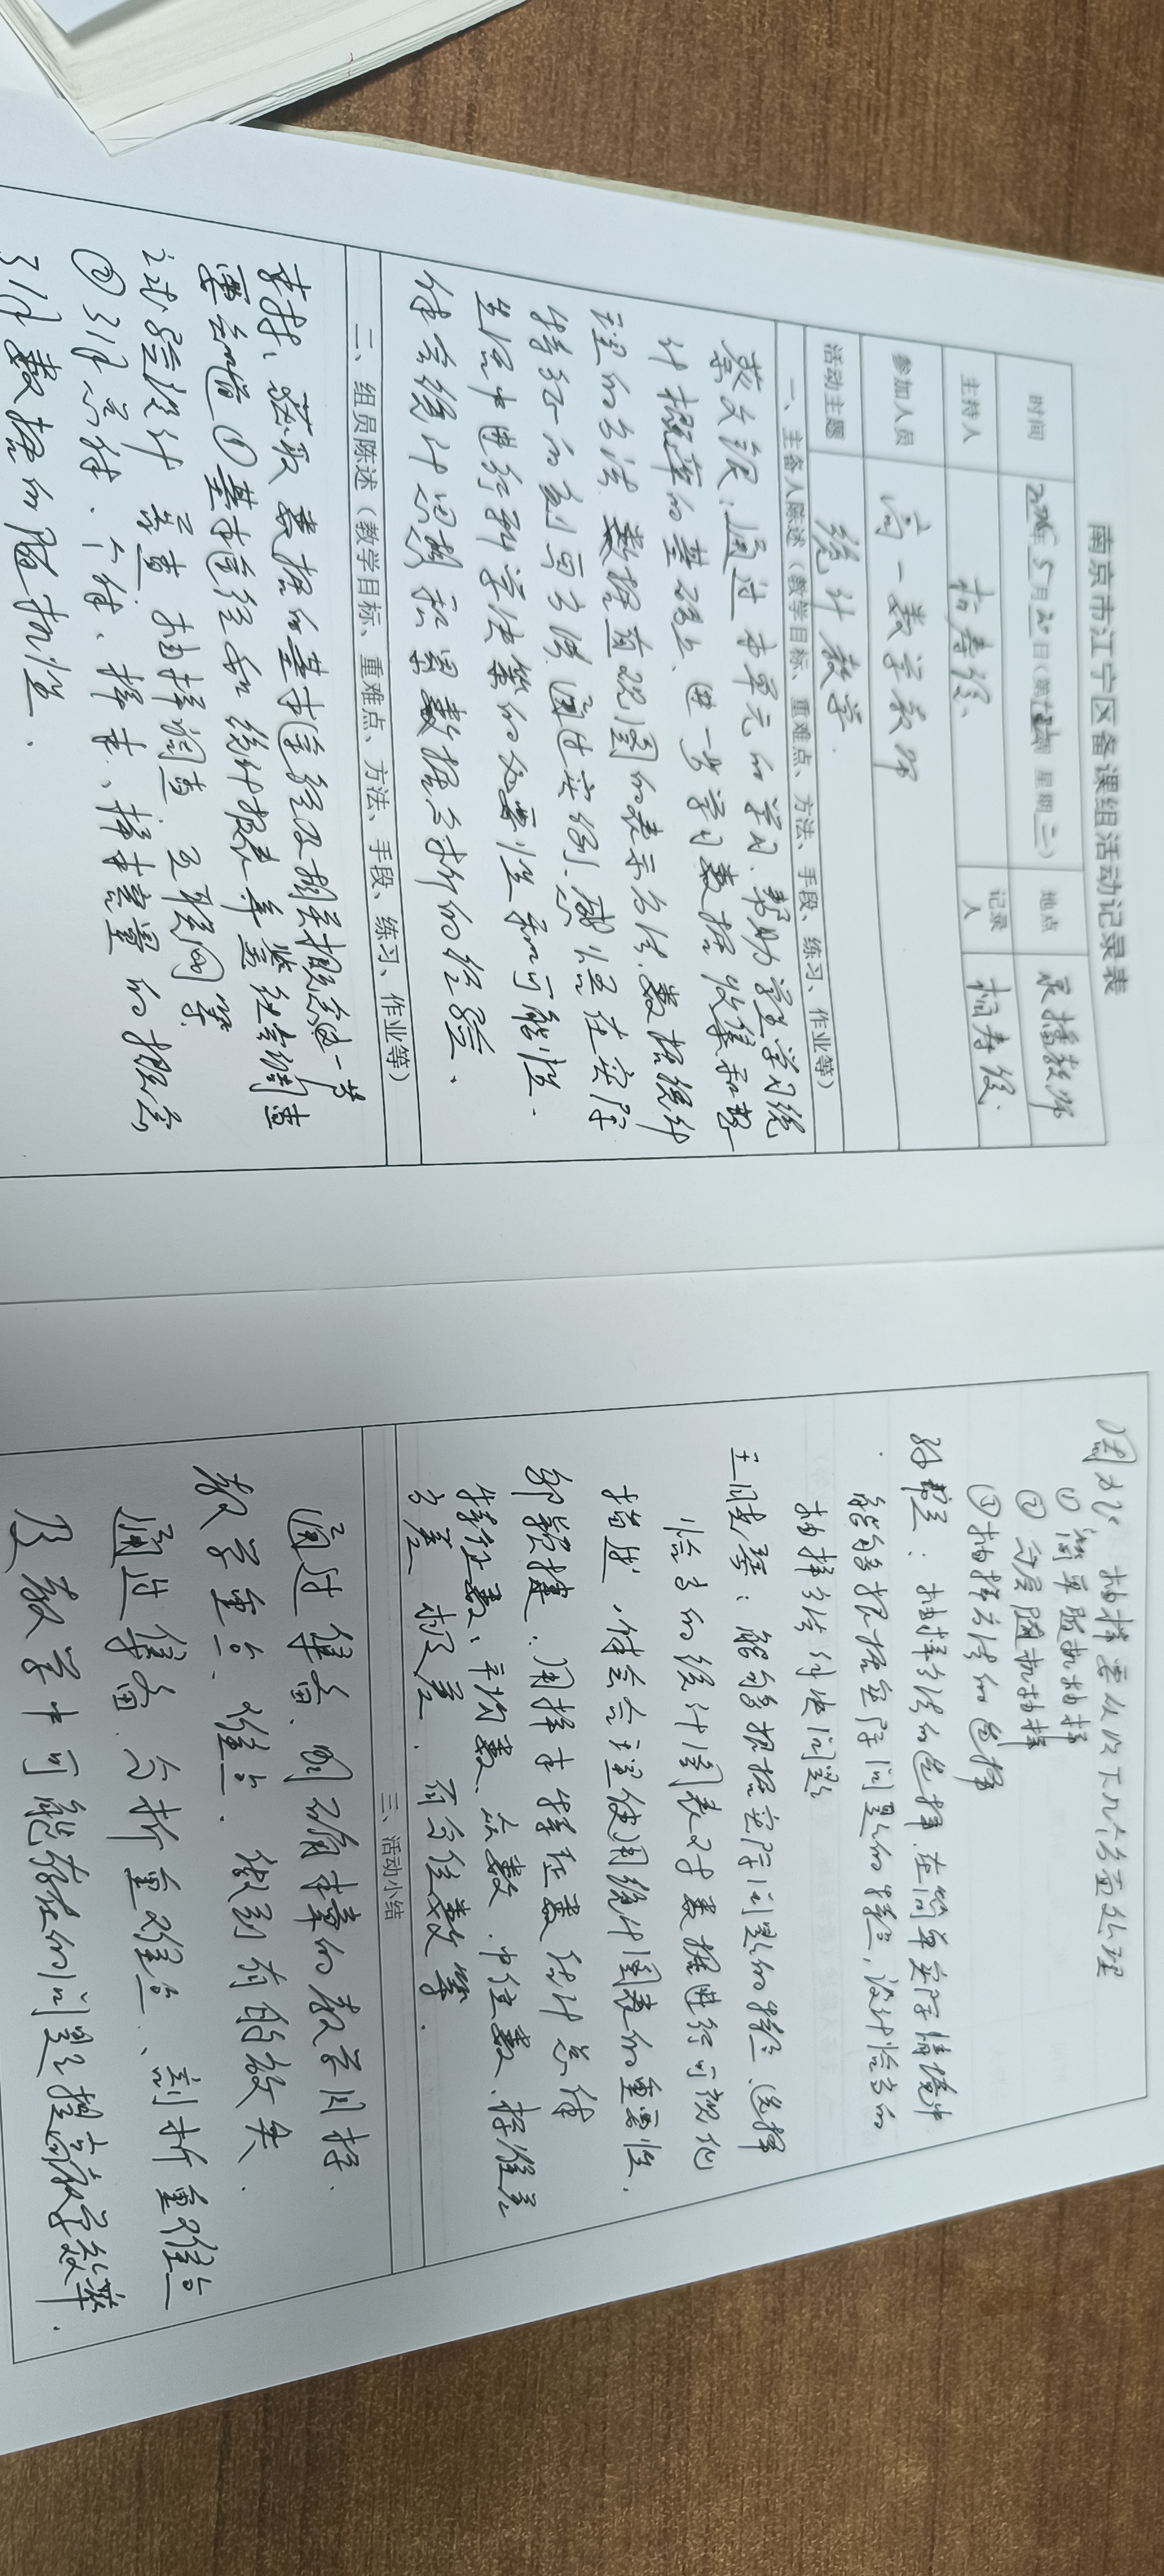 南京市江宁区备课组活动记录表
时间 5月20日(第 周 星期二) 地点 录播教师
主持人 记录人
参加人员 高一数学教师
活动主题 统计教学.
一、主备人陈述(教学目标、重难点、方法、手段、练习、作业等)
蔡文银:通过本单元的学习、帮助学生学习统
计概率的基础上、进一步学习数据收集和整
理的方法、数据直观图的表示方法、数据统计
特征的刻画方法、通过实例、感悟在实际
生活中进行科学决策的必要性和可能性.
体会统计思想积累数据分析的经验.
二、组员陈述(教学目标、重难点、方法、手段、练习、作业等)
获取数据的基本途径及相关概念这一节
要知道①基本途径如统计报表年鉴社会调查
试验设计 普查 抽样调查 互联网等
②引伸总体、个体、样本、样本容量的概念
引伸数据的随机性.
因此 抽样要从以下几个方面处理
①简单随机抽样
②分层随机抽样
③抽样方法的选择
抽样方法的选择.在简单实际情境中
能够根据实际问题的特点,设计恰当的
抽样方法解决问题
王晓琴:能够根据实际问题的特点、选择
恰当的统计图表对数据进行可视化
描述,体会合理使用统计图表的重要性.
郭颖捷.用样本特征数估计总体
特征数、平均数、众数、中位数、标准差
方差 极差.百分位数等.
三、活动小结
通过集备、明确本章的教学目标.
教学重点、难点.做到有的放矢.
通过集备.分析重难点、剖析重难点
及教学中可能存在的问题提高教学效率.